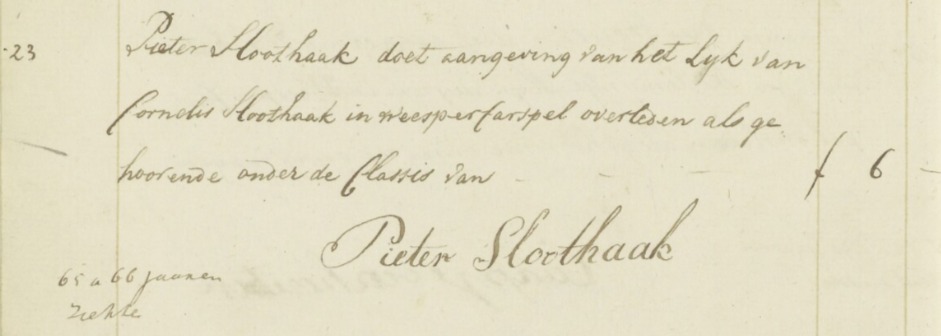 -23 Pieter Sloothaak doet aangeving van het Lyk van
Cornelis Sloothaak in weesper Carspel overleden als ge
hoorende onder de Classis van - - - f 6 -
Pieter Sloothaak
65 a 66 jaaren
Ziekte